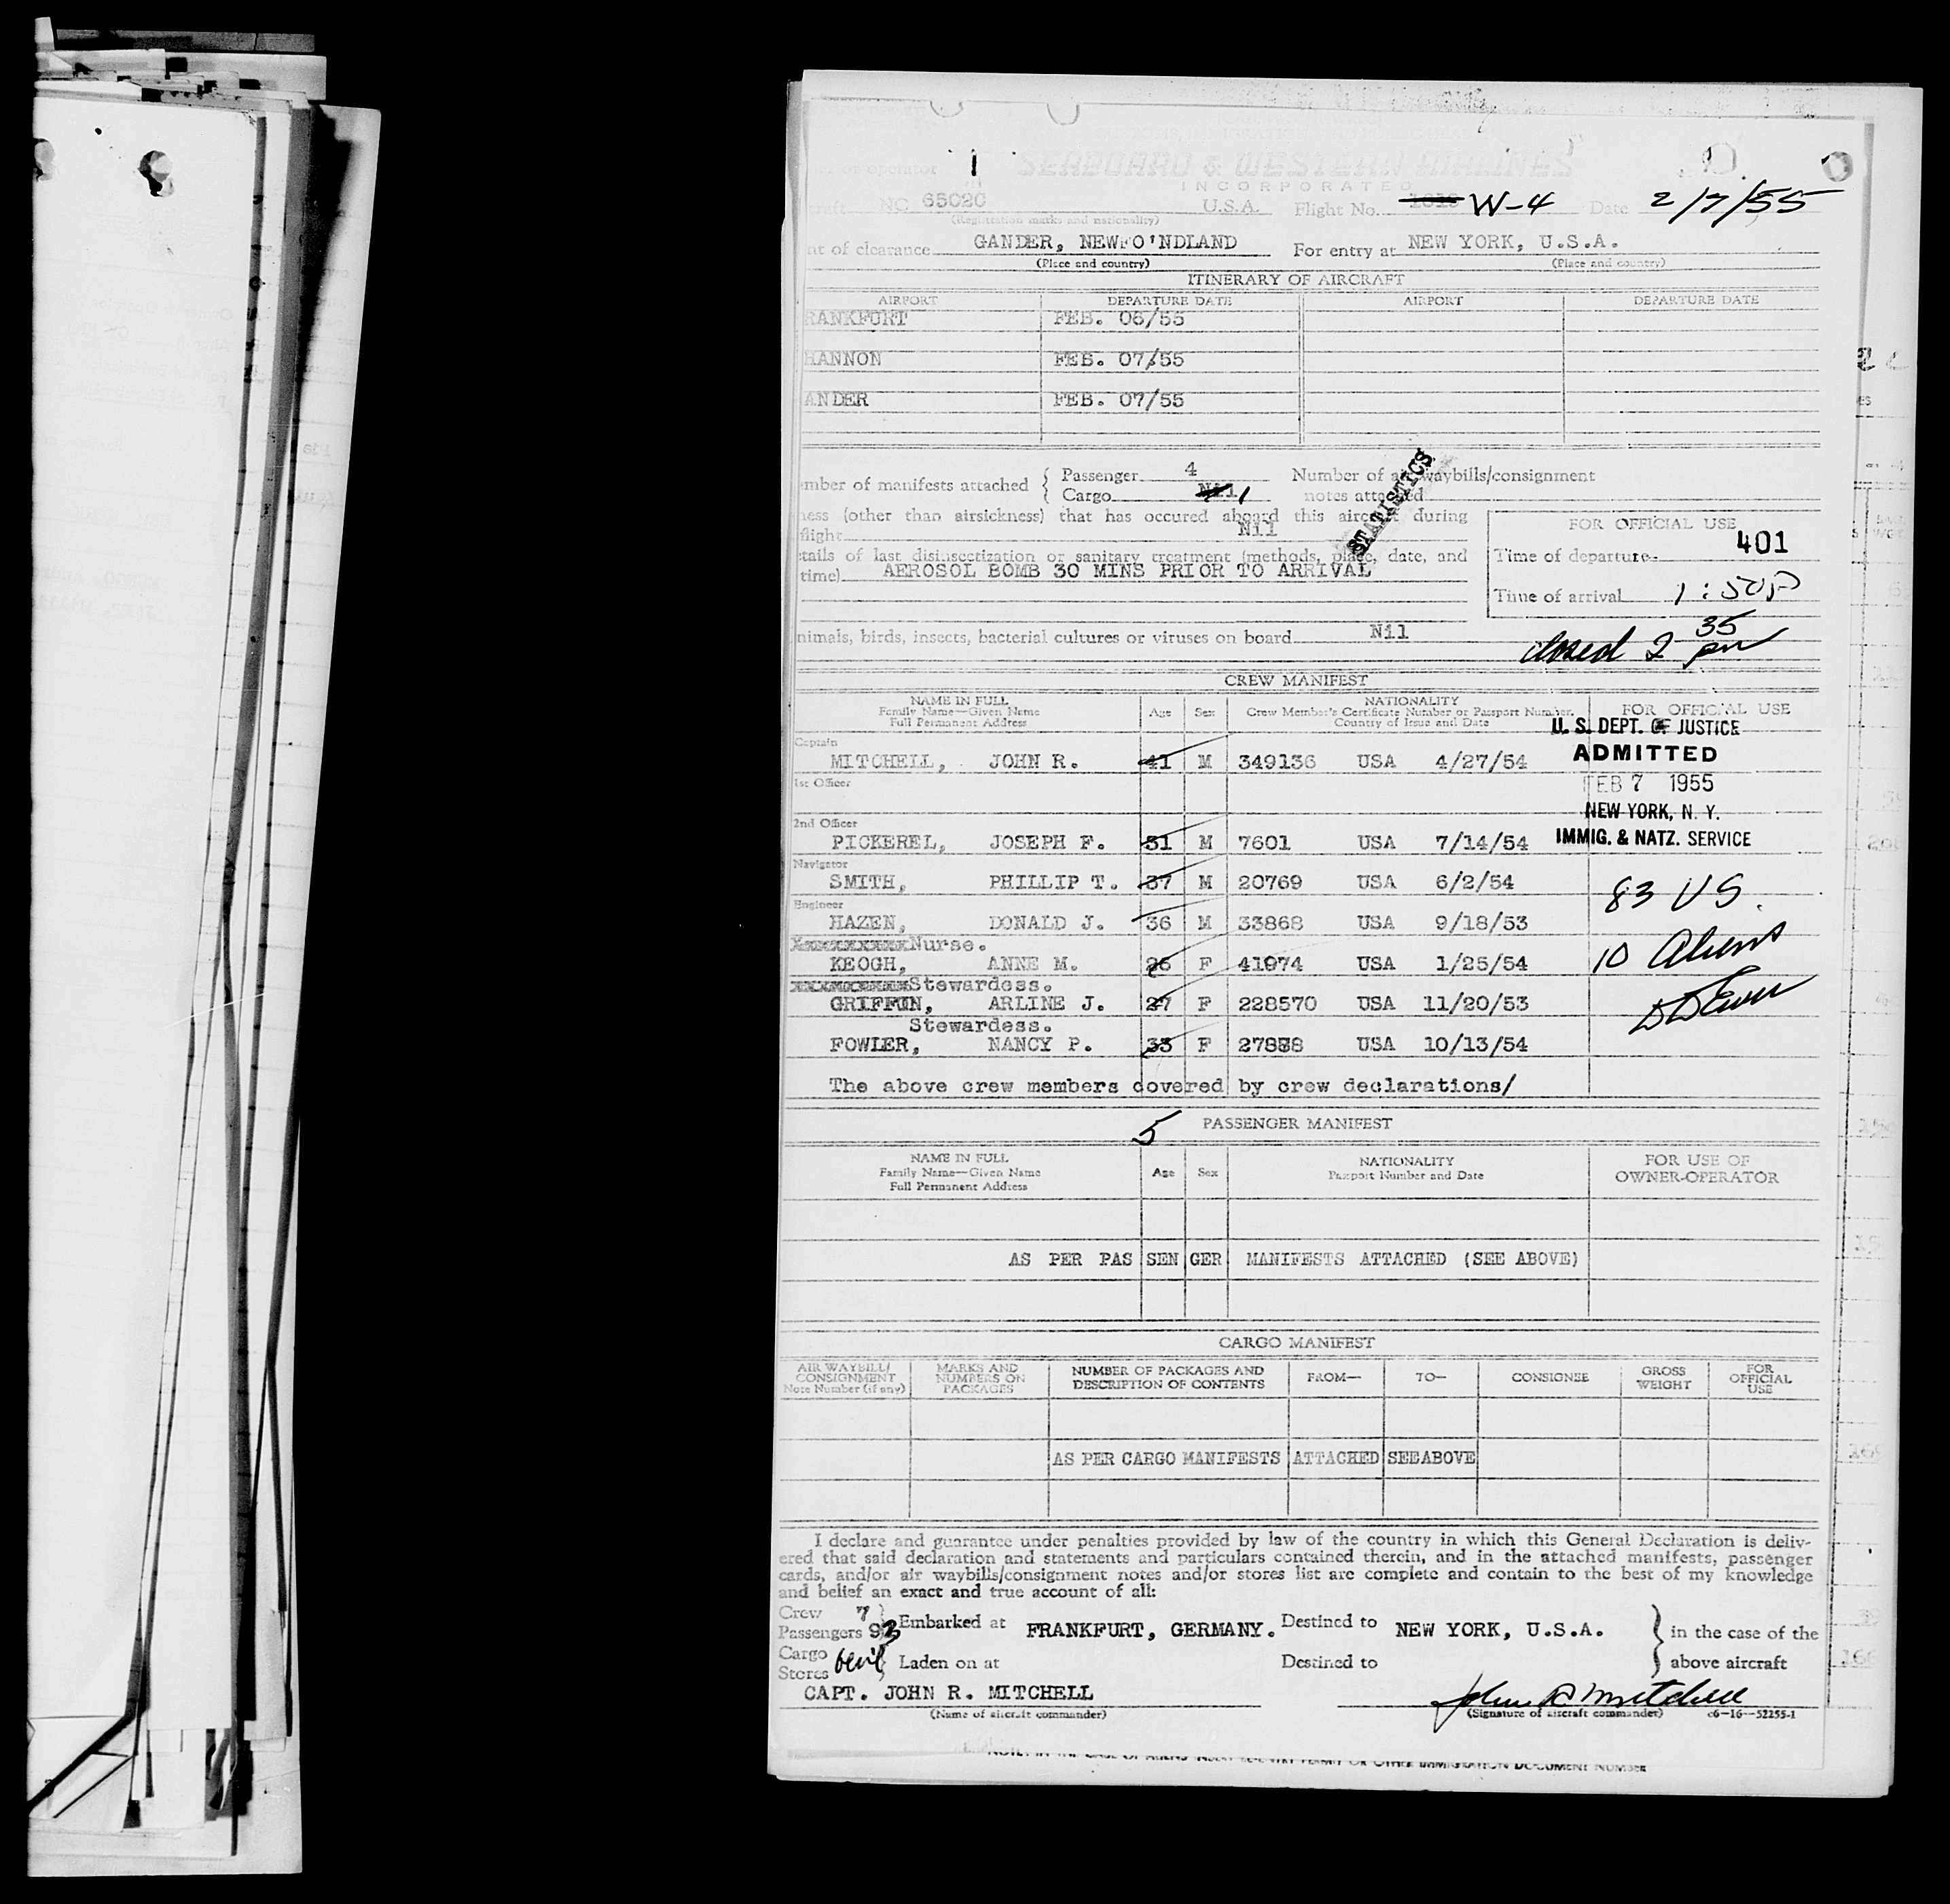 or operator 1 SEABOARD & WESTERN AIRLINES
INCORPORATED
craft NC 65020 U.S.A. Flight No. W-4 Date 2/7/55
(Registration marks and nationality)
nt of clearance GANDER, NEWFO'NDLAND For entry at NEW YORK, U.S.A.
(Place and country) (Place and country)
ITINERARY OF AIRCRAFT
AIRPORT DEPARTURE DATE AIRPORT DEPARTURE DATE
RANKFURT FEB. 06/55
HANNON FEB. 07/55
ANDER FEB. 07/55
mber of manifests attached { Passenger 4 Number of air waybills/consignment
Cargo Nil 1 notes attached
STATISTICS
ness (other than airsickness) that has occured aboard this aircraft during
flight Nil
FOR OFFICIAL USE
401
etails of last disinsectization or sanitary treatment (methods, place, date, and
time) AEROSOL BOMB 30 MINS PRIOR TO ARRIVAL
Time of departure
Time of arrival 1:50P
nimals, birds, insects, bacterial cultures or viruses on board Nil
closed 2 35 pm
CREW MANIFEST
NAME IN FULL
Family Name—Given Name
Full Permanent Address
Age Sex
NATIONALITY
Crew Member's Certificate Number or Passport Number.
Country of Issue and Date
FOR OFFICIAL USE
U. S. DEPT. OF JUSTICE
ADMITTED
FEB 7 1955
NEW YORK, N. Y.
IMMIG. & NATZ. SERVICE
Captain
MITCHELL, JOHN R. 41 M 349136 USA 4/27/54
1st Officer
2nd Officer
PICKEREL, JOSEPH F. 31 M 7601 USA 7/14/54
Navigator
SMITH, PHILLIP T. 37 M 20769 USA 6/2/54
83 US.
Engineer
HAZEN, DONALD J. 36 M 33868 USA 9/18/53
Nurse.
KEOGH, ANNE M. 26 F 41974 USA 1/25/54
10 Aliens
Stewardess.
GRIFFIN, ARLINE J. 27 F 228570 USA 11/20/53
Stewardess.
FOWLER, NANCY P. 33 F USA 10/13/54
The above crew members covered by crew declarations/
5 PASSENGER MANIFEST
NAME IN FULL
Family Name—Given Name
Full Permanent Address
Age Sex
NATIONALITY
Passport Number and Date
FOR USE OF
OWNER-OPERATOR
AS PER PAS SEN GER MANIFESTS ATTACHED (SEE ABOVE)
CARGO MANIFEST
AIR WAYBILL/
CONSIGNMENT
Note Number (if any)
MARKS AND
NUMBERS ON
PACKAGES
NUMBER OF PACKAGES AND
DESCRIPTION OF CONTENTS
FROM— TO— CONSIGNEE
GROSS
WEIGHT
FOR
OFFICIAL
USE
AS PER CARGO MANIFESTS ATTACHED SEE ABOVE
I declare and guarantee under penalties provided by law of the country in which this General Declaration is deliv-
ered that said declaration and statements and particulars contained therein, and in the attached manifests, passenger
cards, and/or air waybills/consignment notes and/or stores list are complete and contain to the best of my knowledge
and belief an exact and true account of all:
Crew 7
Passengers 93 } Embarked at FRANKFURT, GERMANY. Destined to NEW YORK, U.S.A. } in the case of the
Cargo
Stores } Laden on at Destined to above aircraft
CAPT. JOHN R. MITCHELL John R Mitchell
(Name of aircraft commander) (Signature of aircraft commander) c6—16—52255-1
NOTE: IN THE CASE OF ALIENS INSERT RE-ENTRY PERMIT OR OTHER IMMIGRATION DOCUMENT NUMBER